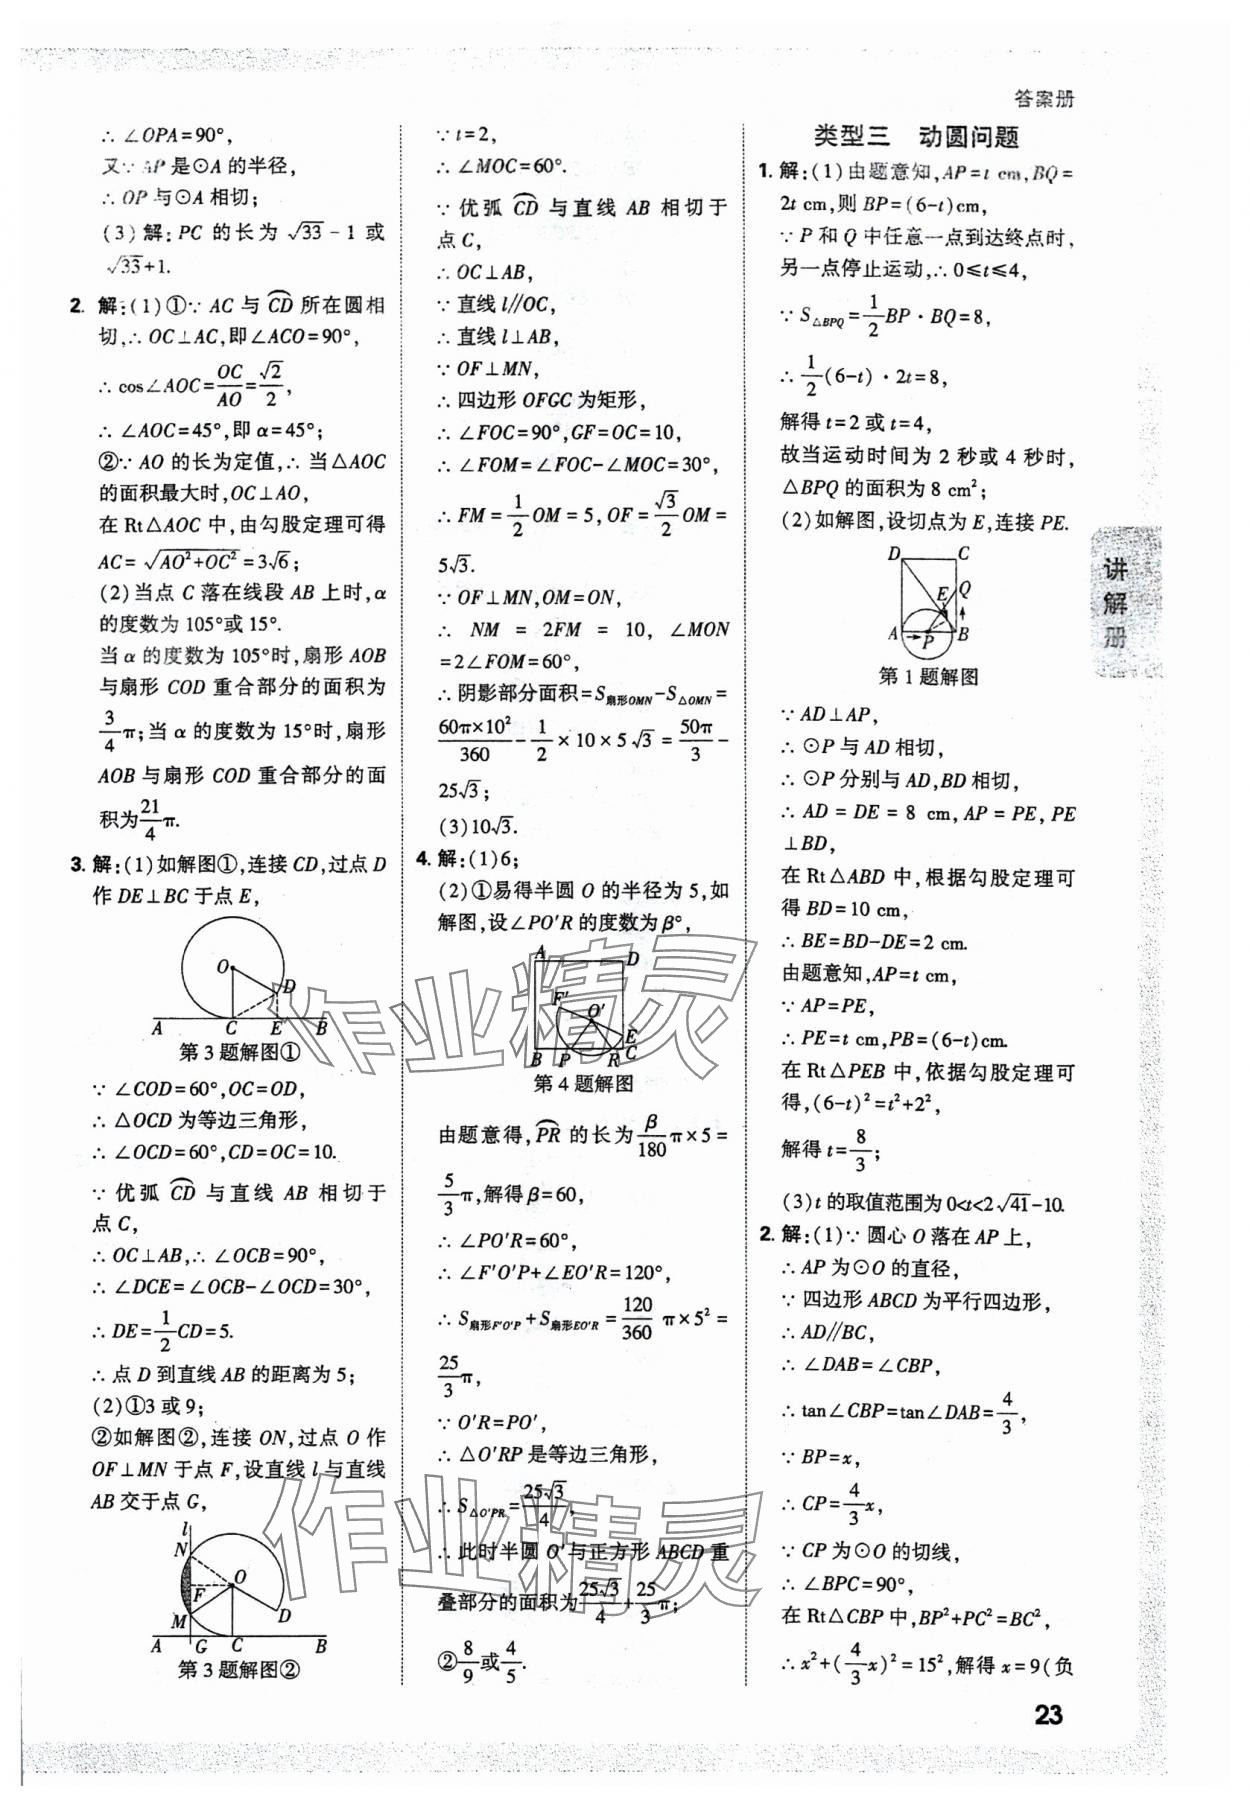 答案册
∴ ∠OPA=90°,
又∵ AP 是⊙A 的半径,
∴ OP 与⊙A 相切;
(3) 解:PC 的长为 √33-1 或
√33+1.
2. 解:(1)①∵ AC 与 ⌒CD 所在圆相
切,∴ OC⊥AC,即∠ACO=90°,
∴ cos∠AOC=OC/AO=√2/2,
∴ ∠AOC=45°,即 α=45°;
②∵ AO 的长为定值,∴ 当△AOC
的面积最大时,OC⊥AO,
在 Rt△AOC 中,由勾股定理可得
AC=√(AO²+OC²)=3√6;
(2)当点 C 落在线段 AB 上时,α
的度数为 105°或 15°.
当 α 的度数为 105°时,扇形 AOB
与扇形 COD 重合部分的面积为
3/4π;当 α 的度数为 15°时,扇形
AOB 与扇形 COD 重合部分的面
积为21/4π.
3. 解:(1)如解图①,连接 CD,过点 D
作 DE⊥BC 于点 E,
O
D
A C E B
第 3 题解图①
∵ ∠COD=60°,OC=OD,
∴ △OCD 为等边三角形,
∴ ∠OCD=60°,CD=OC=10.
∵ 优弧 ⌒CD 与直线 AB 相切于
点 C,
∴ OC⊥AB,∴ ∠OCB=90°,
∴ ∠DCE=∠OCB-∠OCD=30°,
∴ DE=1/2CD=5.
∴ 点 D 到直线 AB 的距离为 5;
(2)①3 或 9;
②如解图②,连接 ON,过点 O 作
OF⊥MN 于点 F,设直线 l 与直线
AB 交于点 G,
l
N
F O
M D
A G C B
第 3 题解图②
∵ t=2,
∴ ∠MOC=60°.
∵ 优弧 ⌒CD 与直线 AB 相切于
点 C,
∴ OC⊥AB,
∵ 直线 l∥OC,
∴ 直线 l⊥AB,
∵ OF⊥MN,
∴ 四边形 OFGC 为矩形,
∴ ∠FOC=90°,GF=OC=10,
∴ ∠FOM=∠FOC-∠MOC=30°,
∴ FM=1/2OM=5,OF=√3/2OM=
5√3.
∵ OF⊥MN,OM=ON,
∴ NM=2FM=10,∠MON
=2∠FOM=60°,
∴ 阴影部分面积=S扇形OMN-S△OMN=
60π×10²/360-1/2×10×5√3=50π/3-
25√3;
(3)10√3.
4. 解:(1)6;
(2)①易得半圆 O 的半径为 5,如
解图,设∠PO′R 的度数为 β°,
A D
F′
O′
E
B P R C
第 4 题解图
由题意得,⌒PR 的长为β/180π×5=
5/3π,解得 β=60,
∴ ∠PO′R=60°,
∴ ∠F′O′P+∠EO′R=120°,
∴ S扇形F′O′P+S扇形EO′R=120/360π×5²=
25/3π,
∵ O′R=PO′,
∴ △O′RP 是等边三角形,
∴ S△O′PR=25√3/4,
∴ 此时半圆 O′与正方形 ABCD 重
叠部分的面积为25√3/4+25/3π;
②8/9或4/5.
类型三 动圆问题
1. 解:(1)由题意知,AP=t cm,BQ=
2t cm,则 BP=(6-t)cm,
∵ P 和 Q 中任意一点到达终点时,
另一点停止运动,∴ 0≤t≤4,
∵ S△BPQ=1/2BP·BQ=8,
∴ 1/2(6-t)·2t=8,
解得 t=2 或 t=4,
故当运动时间为 2 秒或 4 秒时,
△BPQ 的面积为 8 cm²;
(2)如解图,设切点为 E,连接 PE.
D C
E Q
A P B
第 1 题解图
∵ AD⊥AP,
∴ ⊙P 与 AD 相切,
∴ ⊙P 分别与 AD,BD 相切,
∴ AD=DE=8 cm,AP=PE,PE
⊥BD,
在 Rt△ABD 中,根据勾股定理可
得 BD=10 cm,
∴ BE=BD-DE=2 cm.
由题意知,AP=t cm,
∵ AP=PE,
∴ PE=t cm,PB=(6-t)cm.
在 Rt△PEB 中,依据勾股定理可
得,(6-t)²=t²+2²,
解得 t=8/3;
(3)t 的取值范围为 0<t<2√41-10.
2. 解:(1)∵ 圆心 O 落在 AP 上,
∴ AP 为⊙O 的直径,
∵ 四边形 ABCD 为平行四边形,
∴ AD∥BC,
∴ ∠DAB=∠CBP,
∴ tan∠CBP=tan∠DAB=4/3,
∵ BP=x,
∴ CP=4/3x,
∵ CP 为⊙O 的切线,
∴ ∠BPC=90°,
在 Rt△CBP 中,BP²+PC²=BC²
∴ x²+(4/3x)²=15²,解得 x=9(负
讲解册
23
作业精灵
作业精灵